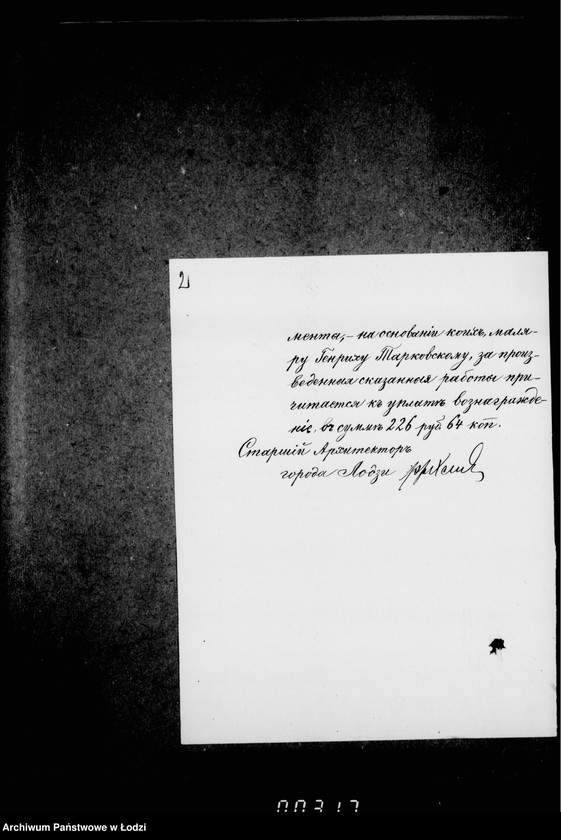 2
мента, – на основаніи коихъ, маля-
ру Генриху Тарковскому, за произ-
веденныя сказанныя работы при-
читается къ уплатѣ вознагражде-
ніе, въ суммѣ 226 руб 64 коп.
Старшій Архитекторъ
города Лодзи
00317
Archiwum Państwowe w Łodzi